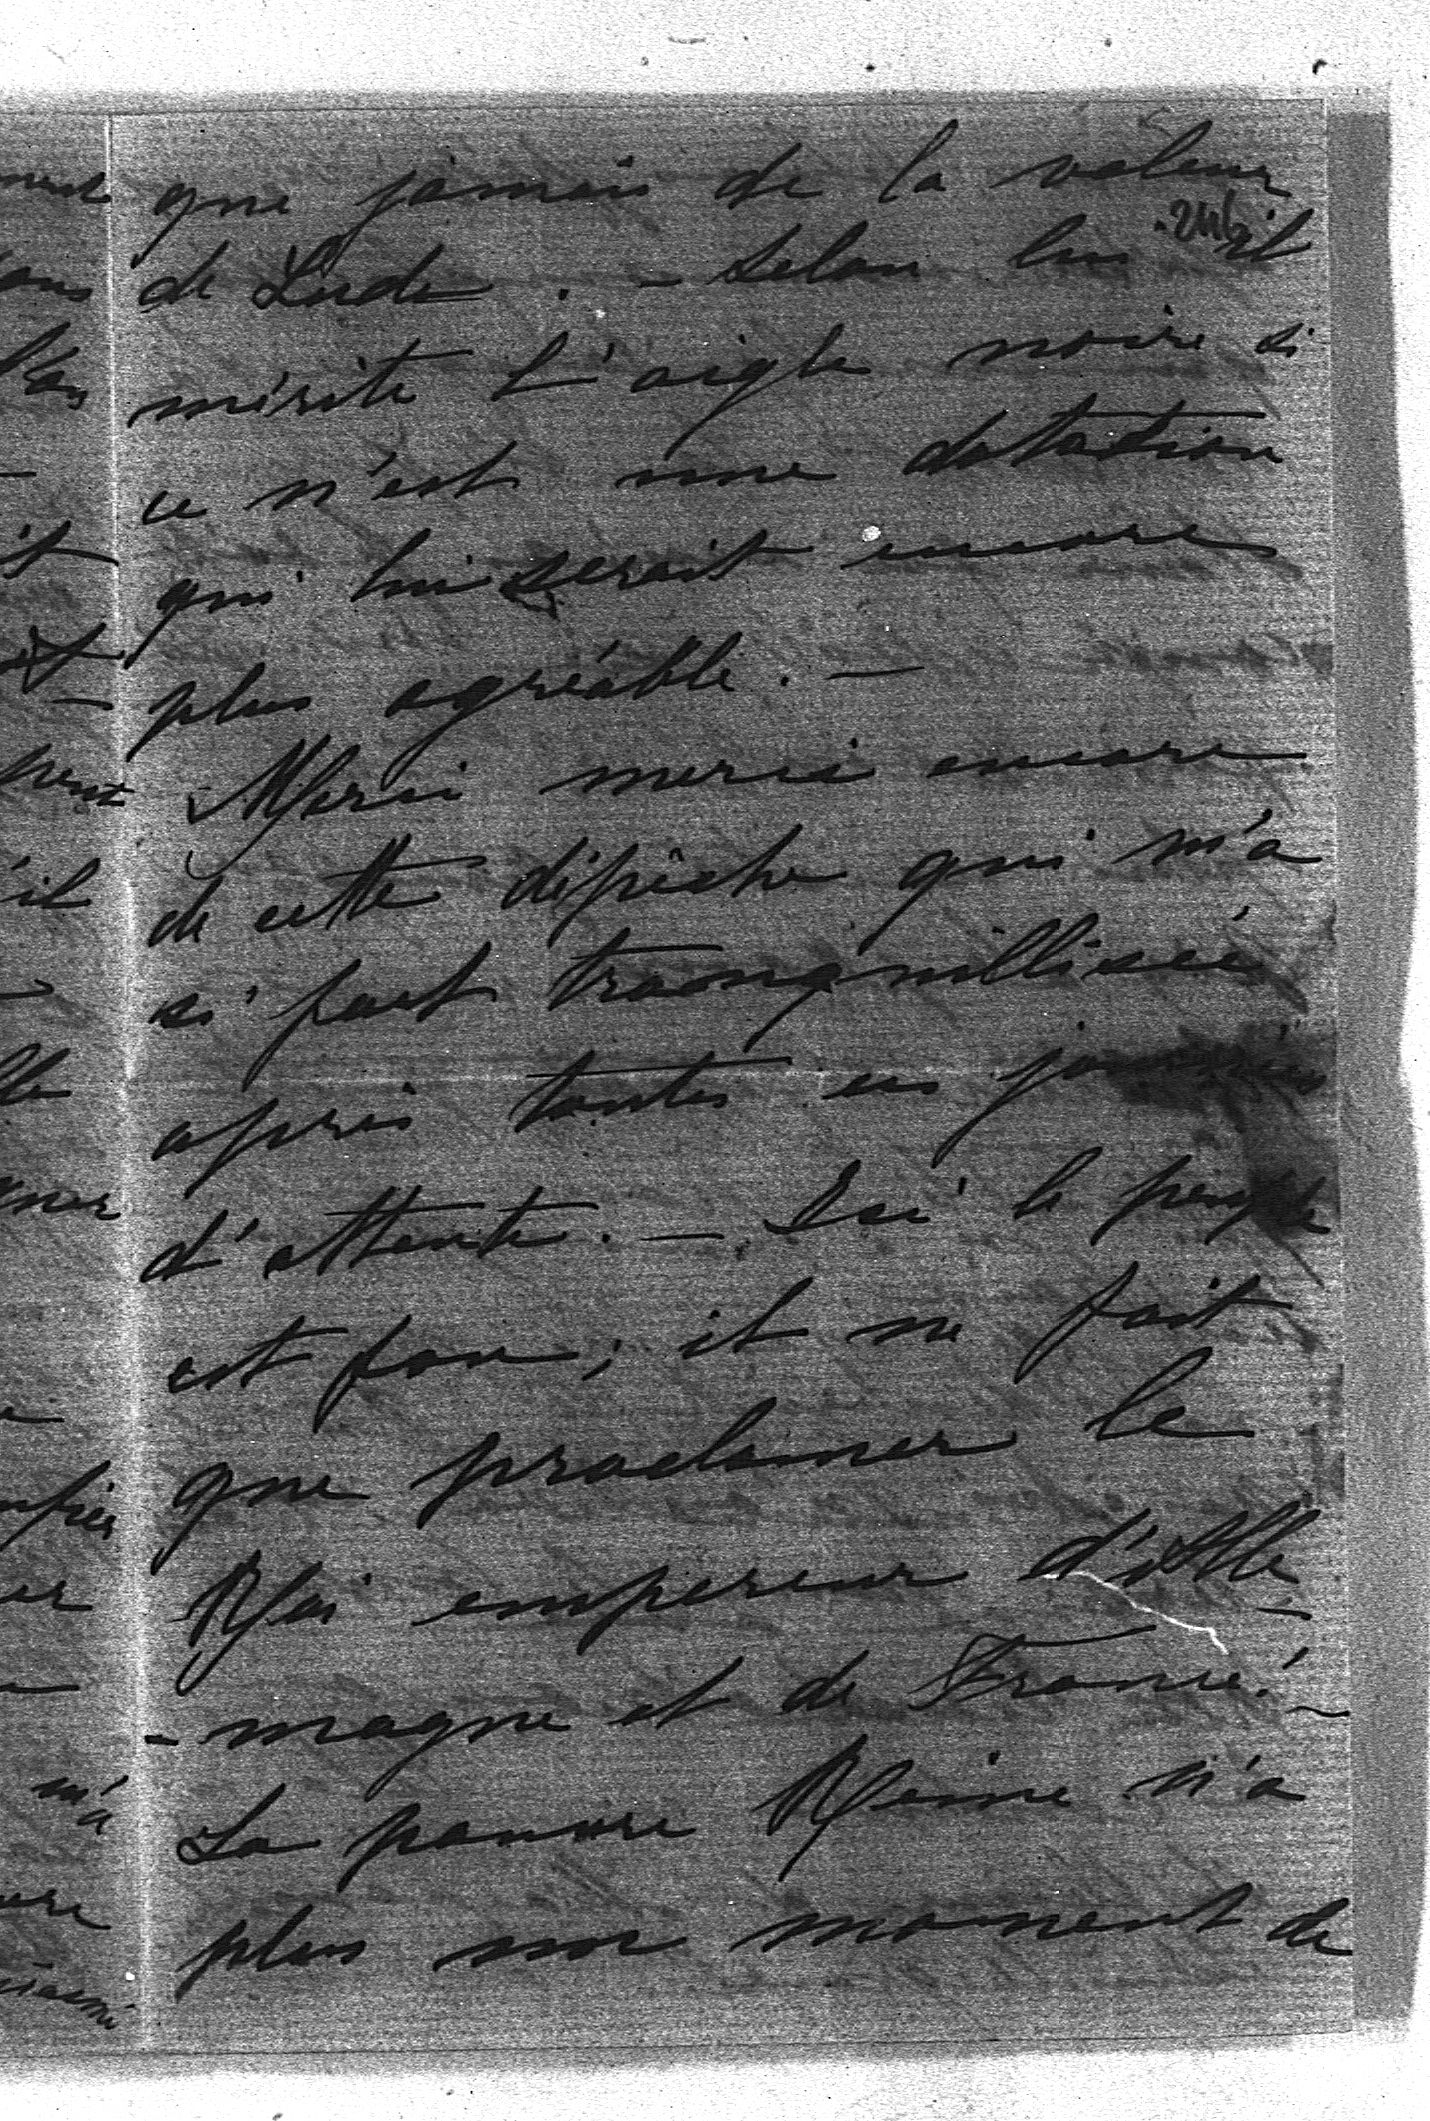 que jamais de la valeur
246
de Lude. - Selon lui il
mérite l'aigle noire si
ce n'est une dotation
qui lui serait encore
plus agréable. -
Merci merci encore
de cette dépêche qui m'a
si fort tranquillisée
après toutes ces journées
d'attente. - Ici le peuple
est fou; il ne fait
que proclamer le
Roi empereur d'Alle-
-magne et de France! -
La pauvre Reine n'a
plus un moment de